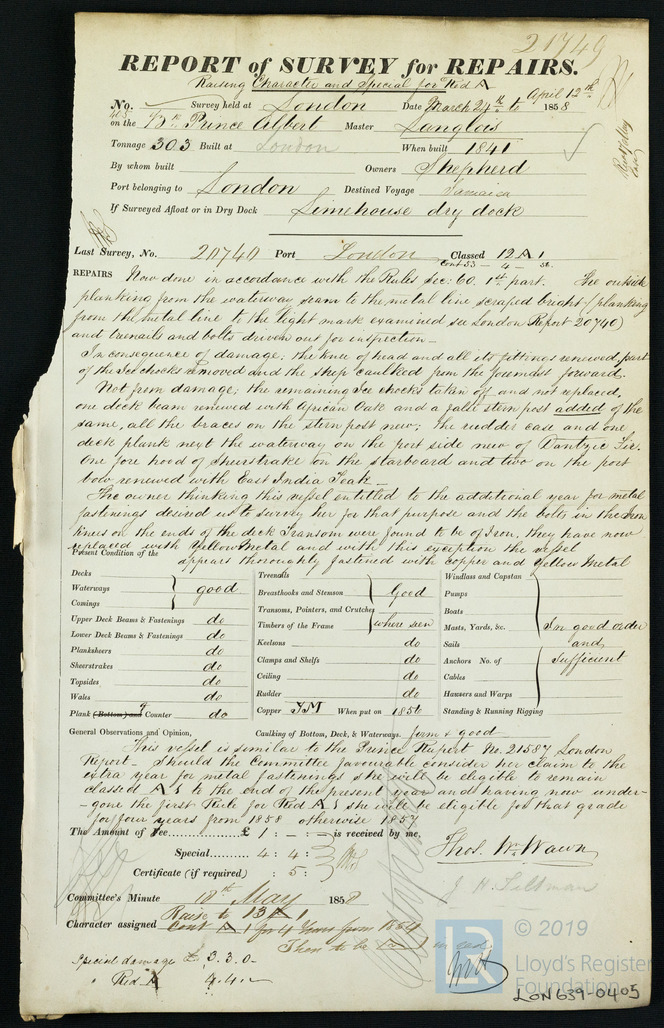 20749
REPORT of SURVEY for REPAIRS.
Raising Character and Special for Red A
No. 405 Survey held at London Date March 24th to April 12th 1858
on the Bk Prince Albert Master Langlois
Tonnage 303 Built at London When built 1841
By whom built Owners Shepherd
Port belonging to London Destined Voyage Jamaica
If Surveyed Afloat or in Dry Dock Limehouse dry dock
Last Survey, No. 20740 Port London Classed 12 A 1
Cont 53 - 4 - 58.
REPAIRS Now done in accordance with the Rules Sec: 60. 1st part. The outside
planking from the waterway seam to the metal line scraped bright (planking
from the metal line to the light mark examined see London Report 20740)
and treenails and bolts driven out for inspection -
In consequence of damage; the knee of head and all its fittings renewed, part
of the Ice chocks removed and the ship caulked from the foremast forward.
Not from damage; the remaining Ice chocks taken off and not replaced,
one deck beam renewed with African Oak and a false stern post added of the
same, all the braces on the stern post new; the rudder case and one
deck plank next the waterway on the port side new of Dantzic Fir.
One fore hood of sheerstrake on the starboard and two on the port
bow renewed with East India Teak -
The owner thinking this vessel entitled to the additional year for metal
fastenings desired us to survey her for that purpose and the bolts in the Iron
knees on the ends of the deck Transom were found to be of Iron, they have now
replaced with Yellow Metal and with this exception the vessel
appears thoroughly fastened with copper and Yellow Metal
Present Condition of the
Decks
Waterways good
Comings
Upper Deck Beams & Fastenings do
Lower Deck Beams & Fastenings do
Planksheers do
Sheerstrakes do
Topsides do
Wales do
Plank (Bottom) and Counter do
Treenails
Breasthooks and Stemson Good
Transoms, Pointers, and Crutches
Timbers of the Frame where seen
Keelsons do
Clamps and Shelfs do
Ceiling do
Rudder do
Copper YM When put on 1856
Windlass and Capstan
Pumps
Boats
Masts, Yards, &c. In good order
Sails and
Anchors No. of Sufficient
Cables
Hawsers and Warps
Standing & Running Rigging
General Observations and Opinion, Caulking of Bottom, Deck, & Waterways. firm & good
This vessel is similar to the Prince Rupert No. 21587 London
Report - Should the Committee favourable consider her claim to the
extra year for metal fastenings she will be eligible to remain
classed A 1 to the end of the present year and having now under-
-gone the first Rule for Red A 1 she will be eligible for that grade
for four years from 1858 otherwise 1857
The Amount of Fee £ 1 : - : - is received by me,
Special 4 : 4 :
Certificate (if required) : 5 :
Thos. Wm. Wawn
Committee's Minute 18th May 1858
Raise to 13 A 1
Character assigned Cont A 1 for 4 Years from 1854
Then to be
Special damage £ 3. 3. 0 -
" Red A 4. 4. -
© 2019
LR
Lloyd's Register
Foundation
LON639-0405